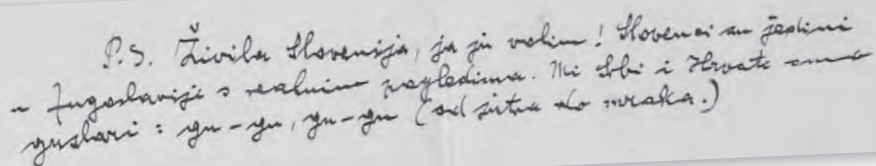 P.S. Živila Slovenija, ja ju volim! Slovenci su jedini
u Jugoslaviji s realnim pogledima. Mi Srbi i Hrvati smo
guslari: gu-gu, gu-gu (od jutra do mraka.)